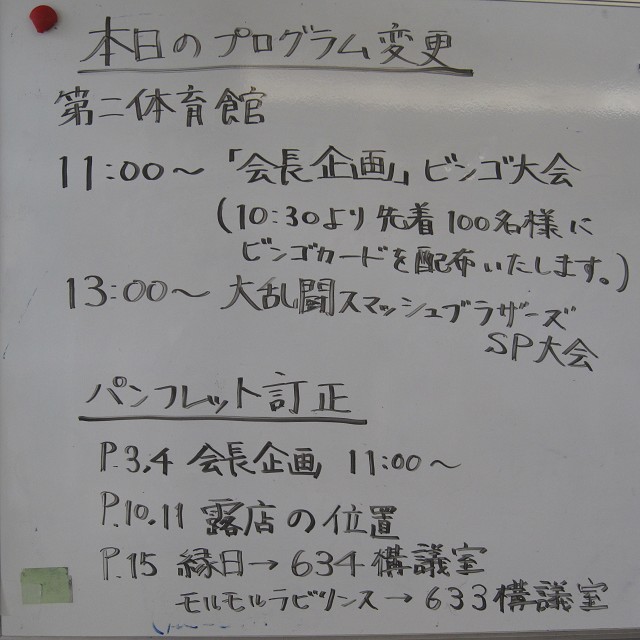 本日のプログラム変更
第二体育館
11:00〜「会長企画」ビンゴ大会
(10:30より先着100名様に
ビンゴカードを配布いたします。)
13:00〜 大乱闘スマッシュブラザーズ
SP大会
パンフレット訂正
P.3,4 会長企画 11:00〜
P.10.11 露店の位置
P.15 縁日→634構議室
モルモルラビリンス→633構議室